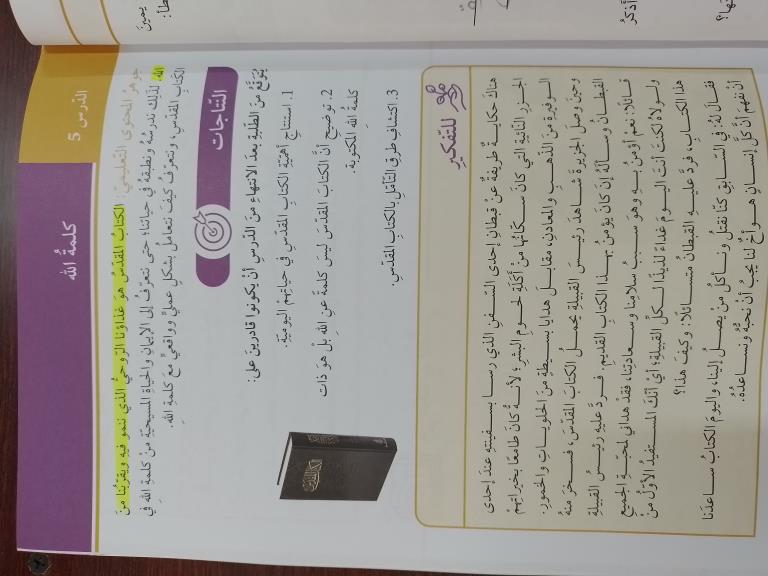 الدّرس 5
كلمةُ الله
جوهرُ المحتوى التّعليميّ: الكتابُ المقدّسُ هو غذاؤنا الرّوحيُّ الذي ننمو فيه ويقرّبُنا منَ
الله. لذلك ندرسُهُ ونطبّقهُ في حياتنا؛ حتى نتعرّفُ إلى الإيمانِ والحياةِ المسيحيّةِ منْ كلمةِ اللهِ في
الكتابِ المقدّسِ، ونتعرّفُ كيفَ نتعاملُ بشكلٍ عمليٍّ وواقعيٍّ مع كلمةِ اللهِ.
النّتاجات
يُتوقّعُ منَ الطّلبةِ بعدَ الانتهاءِ منَ الدّرسِ أنْ يكونوا قادرينَ على:
1. استنتاجِ أهمّيّةِ الكتابِ المقدّسِ في حياتِهِمْ اليوميّةِ.
2. توضيحِ أنَّ الكتابَ المقدّسَ ليسَ كلمةً عنِ اللهِ بلْ هوَ ذات
كلمةُ اللهِ المكتوبة.
3. اكتشافِ طرقِ التّأملِ بالكتابِ المقدّسِ.
الكتاب المقدس
للتفكير
هناكَ حكايةٌ طريفةٌ عنْ قبطانِ إحدى السّفنِ الذي رسا بسفينتِهِ عندَ إحدى
الجزرِ النّائيةِ التي كانَ سكّانُها منْ أكَلَةِ لحومِ البشرِ؛ لأنّهُ كانَ طامعًا بخيراتِهِمْ
الوفيرةِ منَ الذّهبِ والمعادنِ، مقابلَ هدايا بسيطةٍ منَ الحلوياتِ والخمورِ.
وحينَ وصلَ الجزيرةَ شاهدَ رئيسَ القبيلةِ يحملُ الكتابَ المقدّسَ، فسخرَ منهُ
القبطانُ وسألَهُ إنْ كانَ يؤمنُ بهذا الكتابِ القديمِ. فردَّ عليهِ رئيسُ القبيلةِ
قائلًا: نعمْ أؤمنُ بهِ وهوَ سببُ سلامِنا وسعادتِنا، فقدْ هداني لمحبّةِ الجميعِ
ولولاهُ لكنتَ أنتَ اليومَ غداءً لذيذًا لكلِّ القبيلةِ؛ أي أنّكَ المستفيدُ الأوّلُ منْ
هذا الكتابِ، فردَّ عليهِ القبطانُ متسائلًا: وكيفَ هذا؟
فقالَ لهُ: في السّابقِ كنّا نقتلُ ونأكلُ منْ يصلُ إلينا، واليومَ الكتابُ ساعدَنا
أنْ نفهمَ أنَّ كلَّ إنسانٍ هوَ أخٌ لنا يجبُ أنْ نحبَّهُ ونساعدَهُ.
أَذكرُ